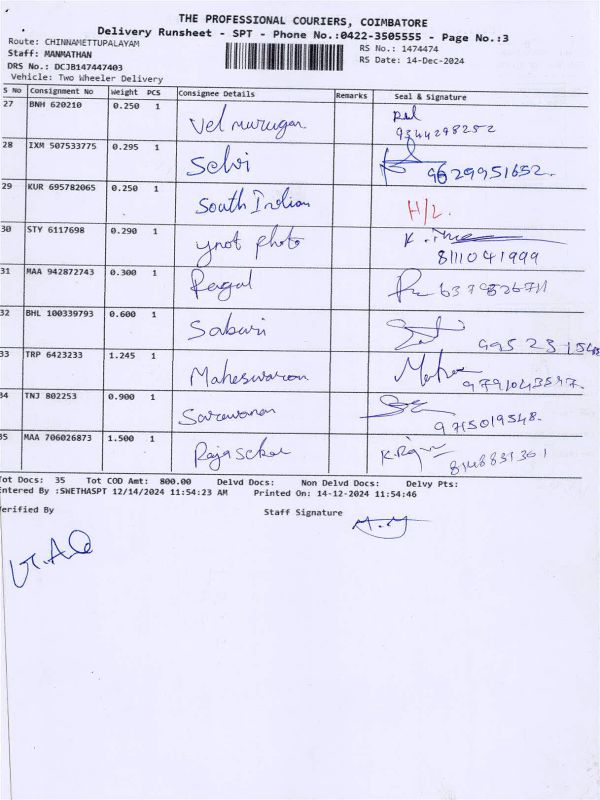 THE PROFESSIONAL COURIERS, COIMBATORE
Delivery Runsheet - SPT - Phone No.:0422-3505555 - Page No.:3
Route: CHINNAMETTUPALAYAM
RS No.: 1474474
Staff: MANMATHAN
RS Date: 14-Dec-2024
DRS No.: DCJB147447403
Vehicle: Two Wheeler Delivery
S No Consignment No Weight PCS Consignee Details Remarks Seal & Signature
27 BNH 620210 0.250 1 Vel murugan
9344298252
28 IXM 507533775 0.295 1 Selvi 9629951652.
29 KUR 695782065 0.250 1 South Indian H/L.
30 STY 6117698 0.290 1 ynot photo
8111041999
31 MAA 942872743 0.300 1
32 BHL 100339793 0.600 1 Sabari
33 TRP 6423233 1.245 1 Maheswaran
34 TNJ 802253 0.900 1 Saravanan
9715019548.
35 MAA 706026873 1.500 1 Rajasekar
Tot Docs: 35 Tot COD Amt: 800.00 Delvd Docs: Non Delvd Docs: Delvy Pts:
Entered By :SWETHASPT 12/14/2024 11:54:23 AM Printed On: 14-12-2024 11:54:46
Verified By Staff Signature